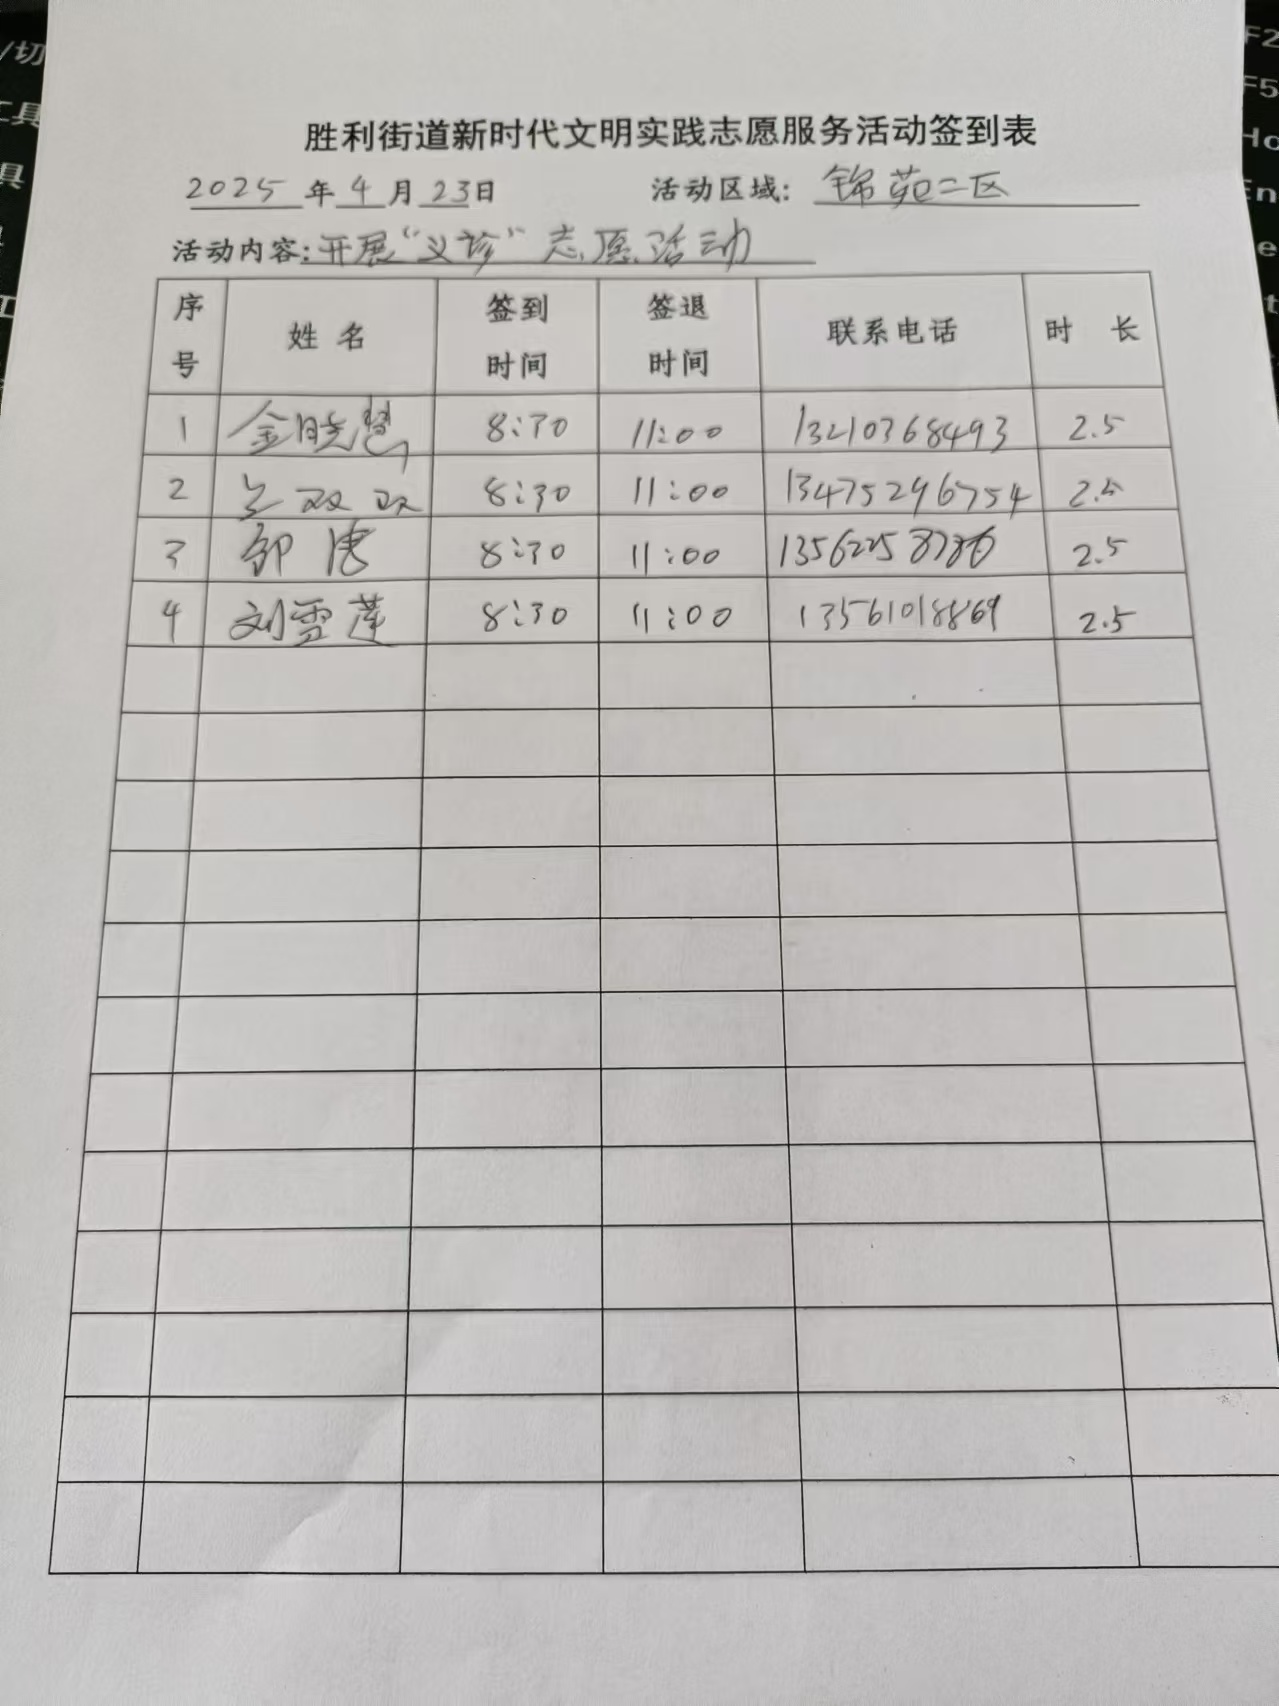 胜利街道新时代文明实践志愿服务活动签到表
2025年4月23日 活动区域：锦苑二区
活动内容：开展“义诊”志愿活动
序号 姓名 签到时间 签退时间 联系电话 时长
1 金晓慧 8:30 11:00 13210368493 2.5
2 双双 8:30 11:00 13475296754 2.5
3 8:30 11:00 2.5
4 刘雪莲 8:30 11:00 13561018869 2.5
/切
工具
具
F2
F5
Ho
En